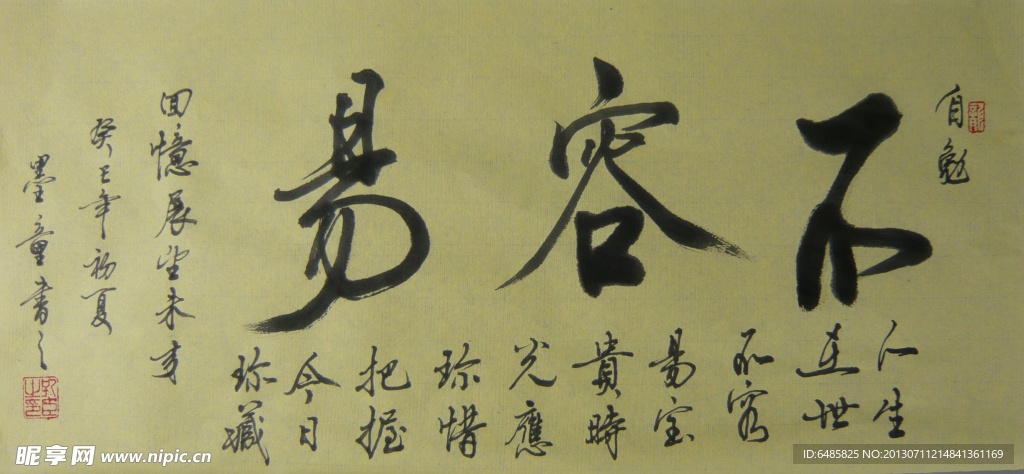 自勉
不容易
人生
在世
不容
易宝
貴時
光應
珍惜
把握
今日
珍藏
回憶展望未来
癸巳年初夏
墨童書之
昵享网 www.nipic.cn
ID:6485825 NO:20130711214841361169